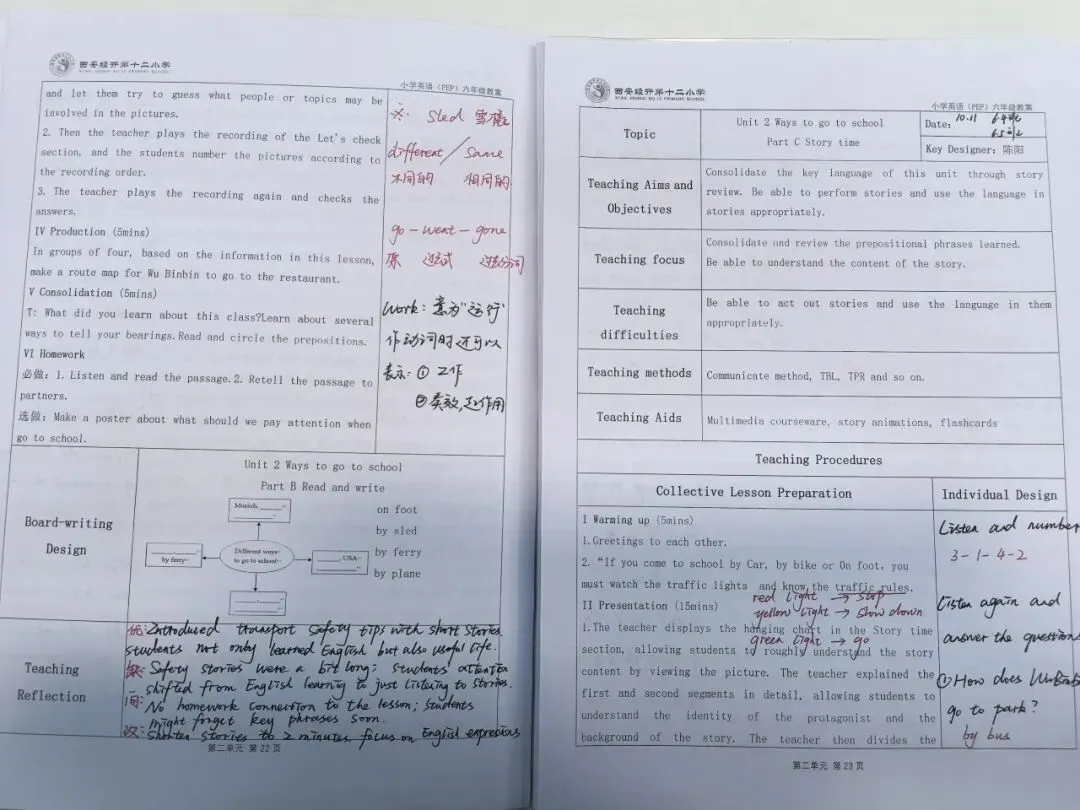 西安经开第十二小学
XI'AN JINGKAI NO.12 PRIMARY SCHOOL
小学英语（PEP）六年级教案
and let them try to guess what people or topics may be
involved in the pictures.
2. Then the teacher plays the recording of the Let's check
section, and the students number the pictures according to
the recording order.
3. The teacher plays the recording again and checks the
answers.
IV Production (5mins)
In groups of four, based on the information in this lesson,
make a route map for Wu Binbin to go to the restaurant.
V Consolidation (5mins)
T: What did you learn about this class?Learn about several
ways to tell your bearings.Read and circle the prepositions.
VI Homework
必做: 1. Listen and read the passage.2. Retell the passage to
partners.
选做: Make a poster about what should we pay attention when
go to school.
※. sled 雪橇
different / same
不同的 相同的
go - went - gone
原 过去式 过去分词
Work: 意为"运行"
作动词时还可以
表示: ① 工作
② 奏效,起作用
Board-writing
Design
Unit 2 Ways to go to school
Part B Read and write
Munich,
by ferry
Different ways
to go to school
USA
on foot
by sled
by ferry
by plane
Teaching
Reflection
优: Introduced transport safety tips with short stories.
students not only learned English but also useful life.
缺: Safety stories were a bit long; students' attention
shifted from English learning to just listening to stories.
问: No homework connection to the lesson; students
might forget key phrases soon.
改: Shorten stories to 2 minutes, focus on English expressions
第二单元 第 22 页
西安经开第十二小学
XI'AN JINGKAI NO.12 PRIMARY SCHOOL
小学英语（PEP）六年级教案
Topic
Unit 2 Ways to go to school
Part C Story time
Date: 10.11
Key Designer: 陈阳
Teaching Aims and
Objectives
Consolidate the key language of this unit through story
review. Be able to perform stories and use the language in
stories appropriately.
Teaching focus
Consolidate und review the prepositional phrases learned.
Be able to understand the content of the story.
Teaching
difficulties
Be able to act out stories and use the language in them
appropriately.
Teaching methods
Communicate method, TBL, TPR and so on.
Teaching Aids
Multimedia courseware, story animations, flashcards
Teaching Procedures
Collective Lesson Preparation
Individual Design
I Warming up (5mins)
1.Greetings to each other.
2. "If you come to school by Car, by bike or On foot, you
must watch the traffic lights and know the traffic rules.
red light → stop
II Presentation (15mins)
yellow light → show down
1.The teacher displays the hanging chart in the Story time
green light → go
section, allowing students to roughly understand the story
content by viewing the picture. The teacher explained the
first and second segments in detail, allowing students to
understand the identity of the protagonist and the
background of the story. The teacher then divides the
Listen and number
3-1-4-2
Listen again and
answer the questions
① How does WuBinbin
go to park?
by bus
第二单元 第 23 页